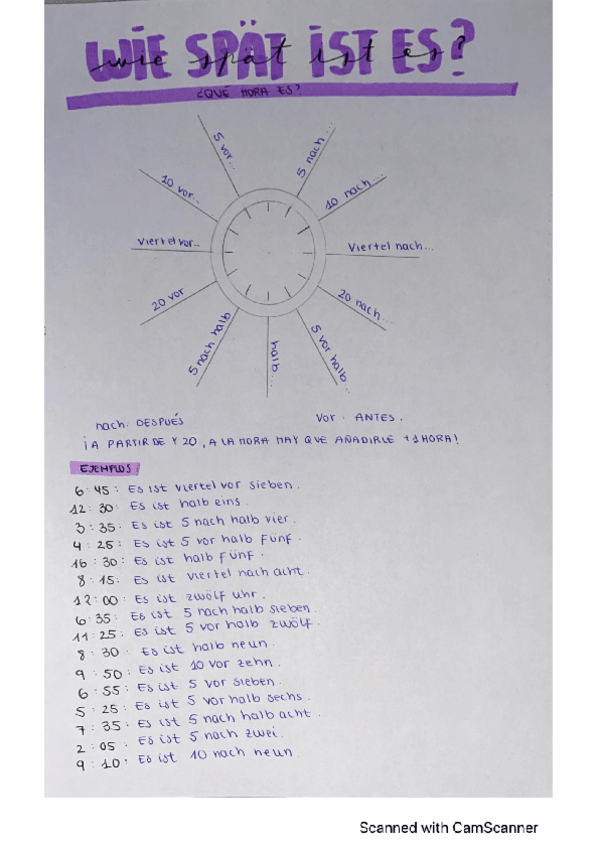 WIE SPÄT IST ES?
wie spät ist es?
¿QUÉ HORA ES?
5 vor...
5 nach...
10 vor...
10 nach...
Viertel vor...
Viertel nach...
20 vor
20 nach...
5 nach halb
halb...
5 vor halb...
nach: DESPUÉS
Vor: ANTES.
¡A PARTIR DE Y 20, A LA HORA HAY QUE AÑADIRLE +1 HORA!
EJEMPLOS
6:45: Es ist viertel vor sieben.
12:30: Es ist halb eins.
3:35: Es ist 5 nach halb vier.
4:25: Es ist 5 vor halb fünf.
16:30: Es ist halb fünf.
8:15: Es ist viertel nach acht.
12:00: Es ist zwölf uhr.
6:35: Es ist 5 nach halb sieben.
11:25: Es ist 5 vor halb zwölf.
8:30: Es ist halb neun.
9:50: Es ist 10 vor zehn.
6:55: Es ist 5 vor sieben.
5:25: Es ist 5 vor halb sechs.
7:35: Es ist 5 nach halb acht.
2:05: Es ist 5 nach zwei.
9:10: Es ist 10 nach neun.
Scanned with CamScanner